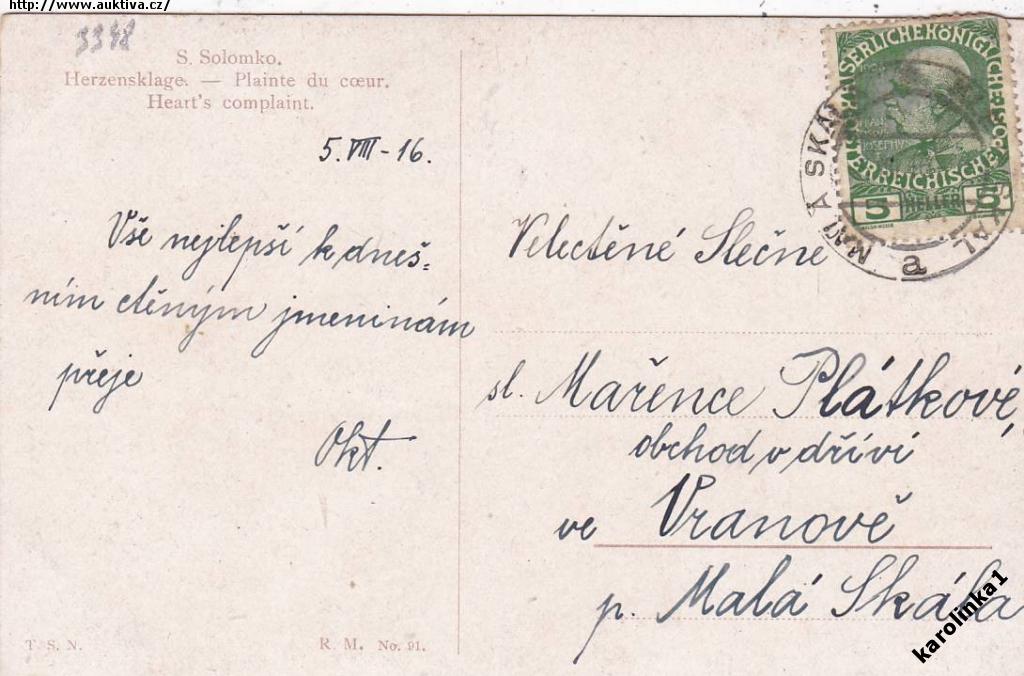 http://www.auktiva.cz/
3348
S. Solomko.
Herzensklage. — Plainte du cœur.
Heart's complaint.
5. VIII - 16.
Vše nejlepší k dneš=
ním ctěným jmeninám
přeje
Okt.
KAISERLICHE KÖNIGLICHE
ÖSTERREICHISCHE
5 HELLER 5
MALÁ SKÁ
a
Velectěné Slečně
sl. Mařence Plátkové,
obchod v dříví
ve Vranově
p. Malá Skála
T. S. N.
R. M. No. 91.
karolinka1